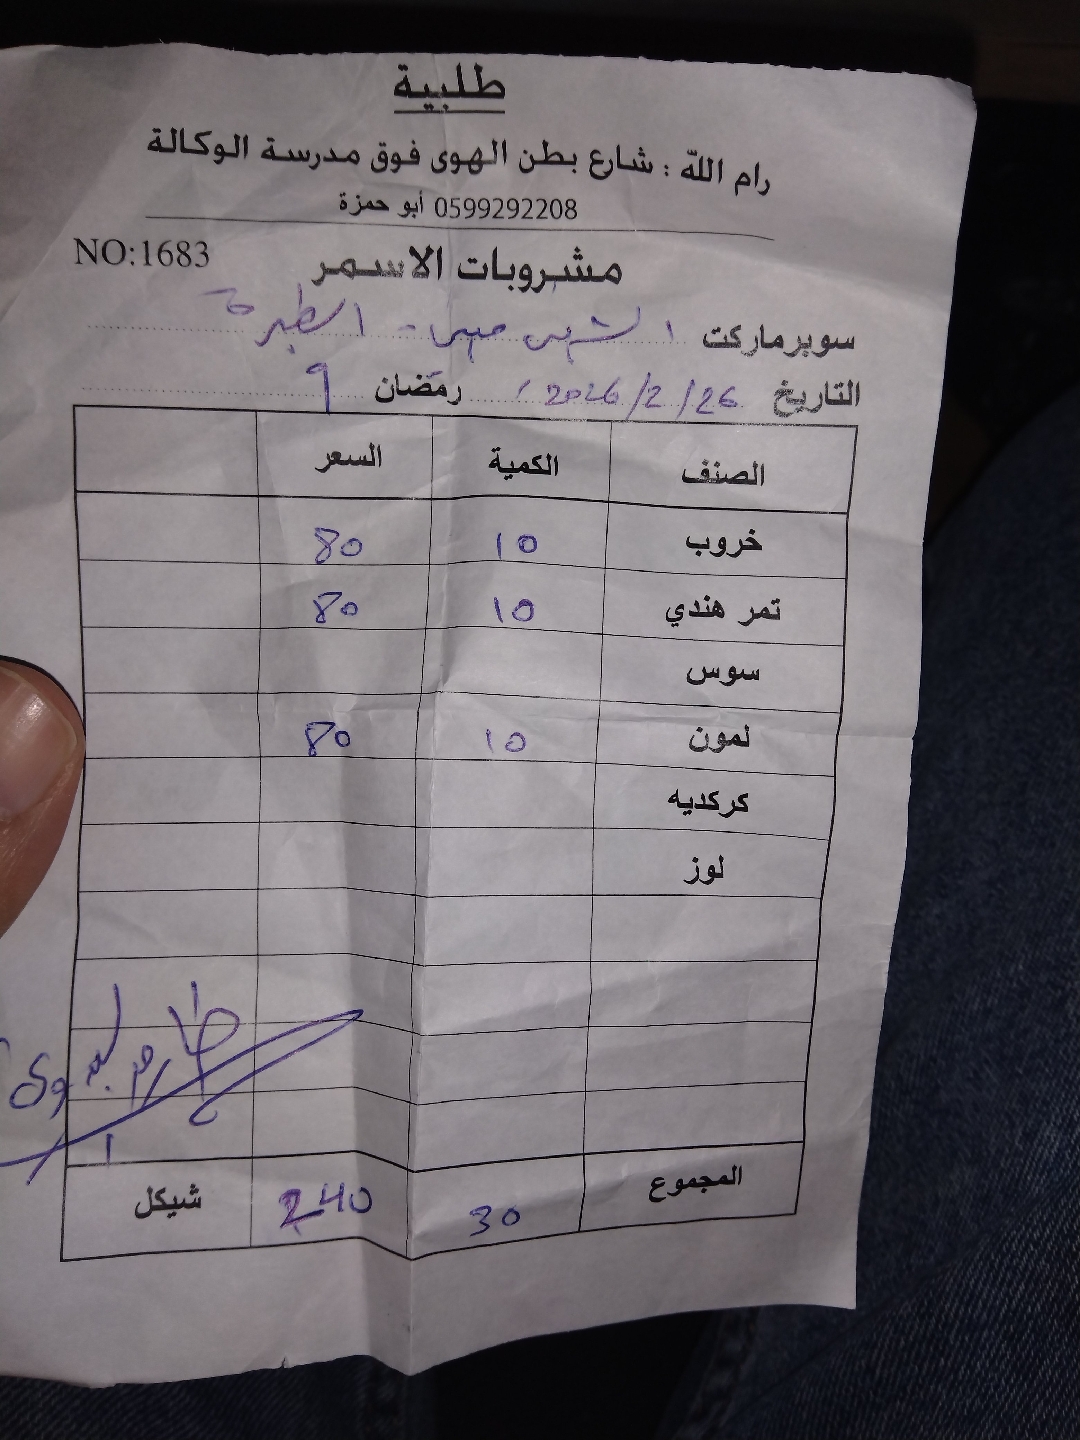 طلبية
رام الله : شارع بطن الهوى فوق مدرسة الوكالة
0599292208 أبو حمزة
NO:1683
مشروبات الاسمر
سوبرماركت الطيرة
التاريخ 26/2/2026 رمضان ٩
الصنف الكمية السعر
خروب 10 80
تمر هندي 10 80
سوس
لمون 10 80
كركديه
لوز
المجموع 30 240 شيكل